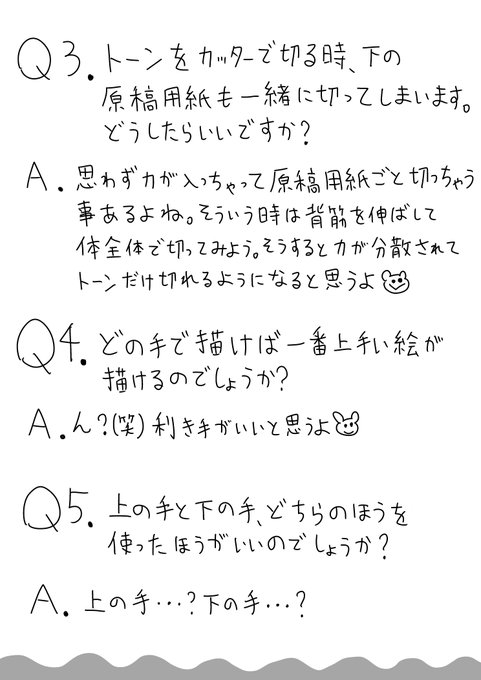 Q3. トーンをカッターで切る時、下の
原稿用紙も一緒に切ってしまいます。
どうしたらいいですか?
A. 思わず力が入っちゃって原稿用紙ごと切っちゃう
事あるよね。そういう時は背筋を伸ばして
体全体で切ってみよう。そうすると力が分散されて
トーンだけ切れるようになると思うよ
Q4. どの手で描けば一番上手い絵が
描けるのでしょうか?
A. ん?(笑)利き手がいいと思うよ
Q5. 上の手と下の手、どちらのほうを
使ったほうがいいのでしょうか?
A. 上の手・・・?下の手・・・?